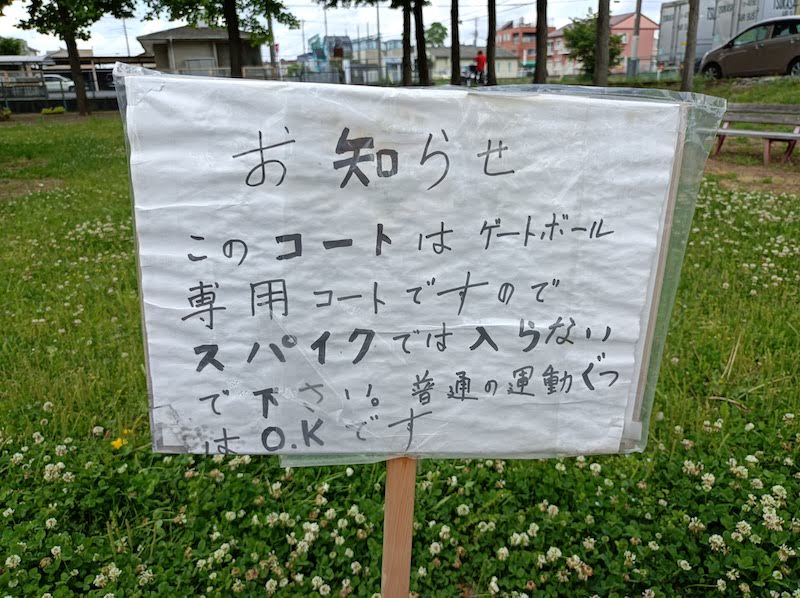 お知らせ
このコートはゲートボール
専用コートですので
スパイクでは入らない
で下さい。普通の運動ぐつ
はO.Kです